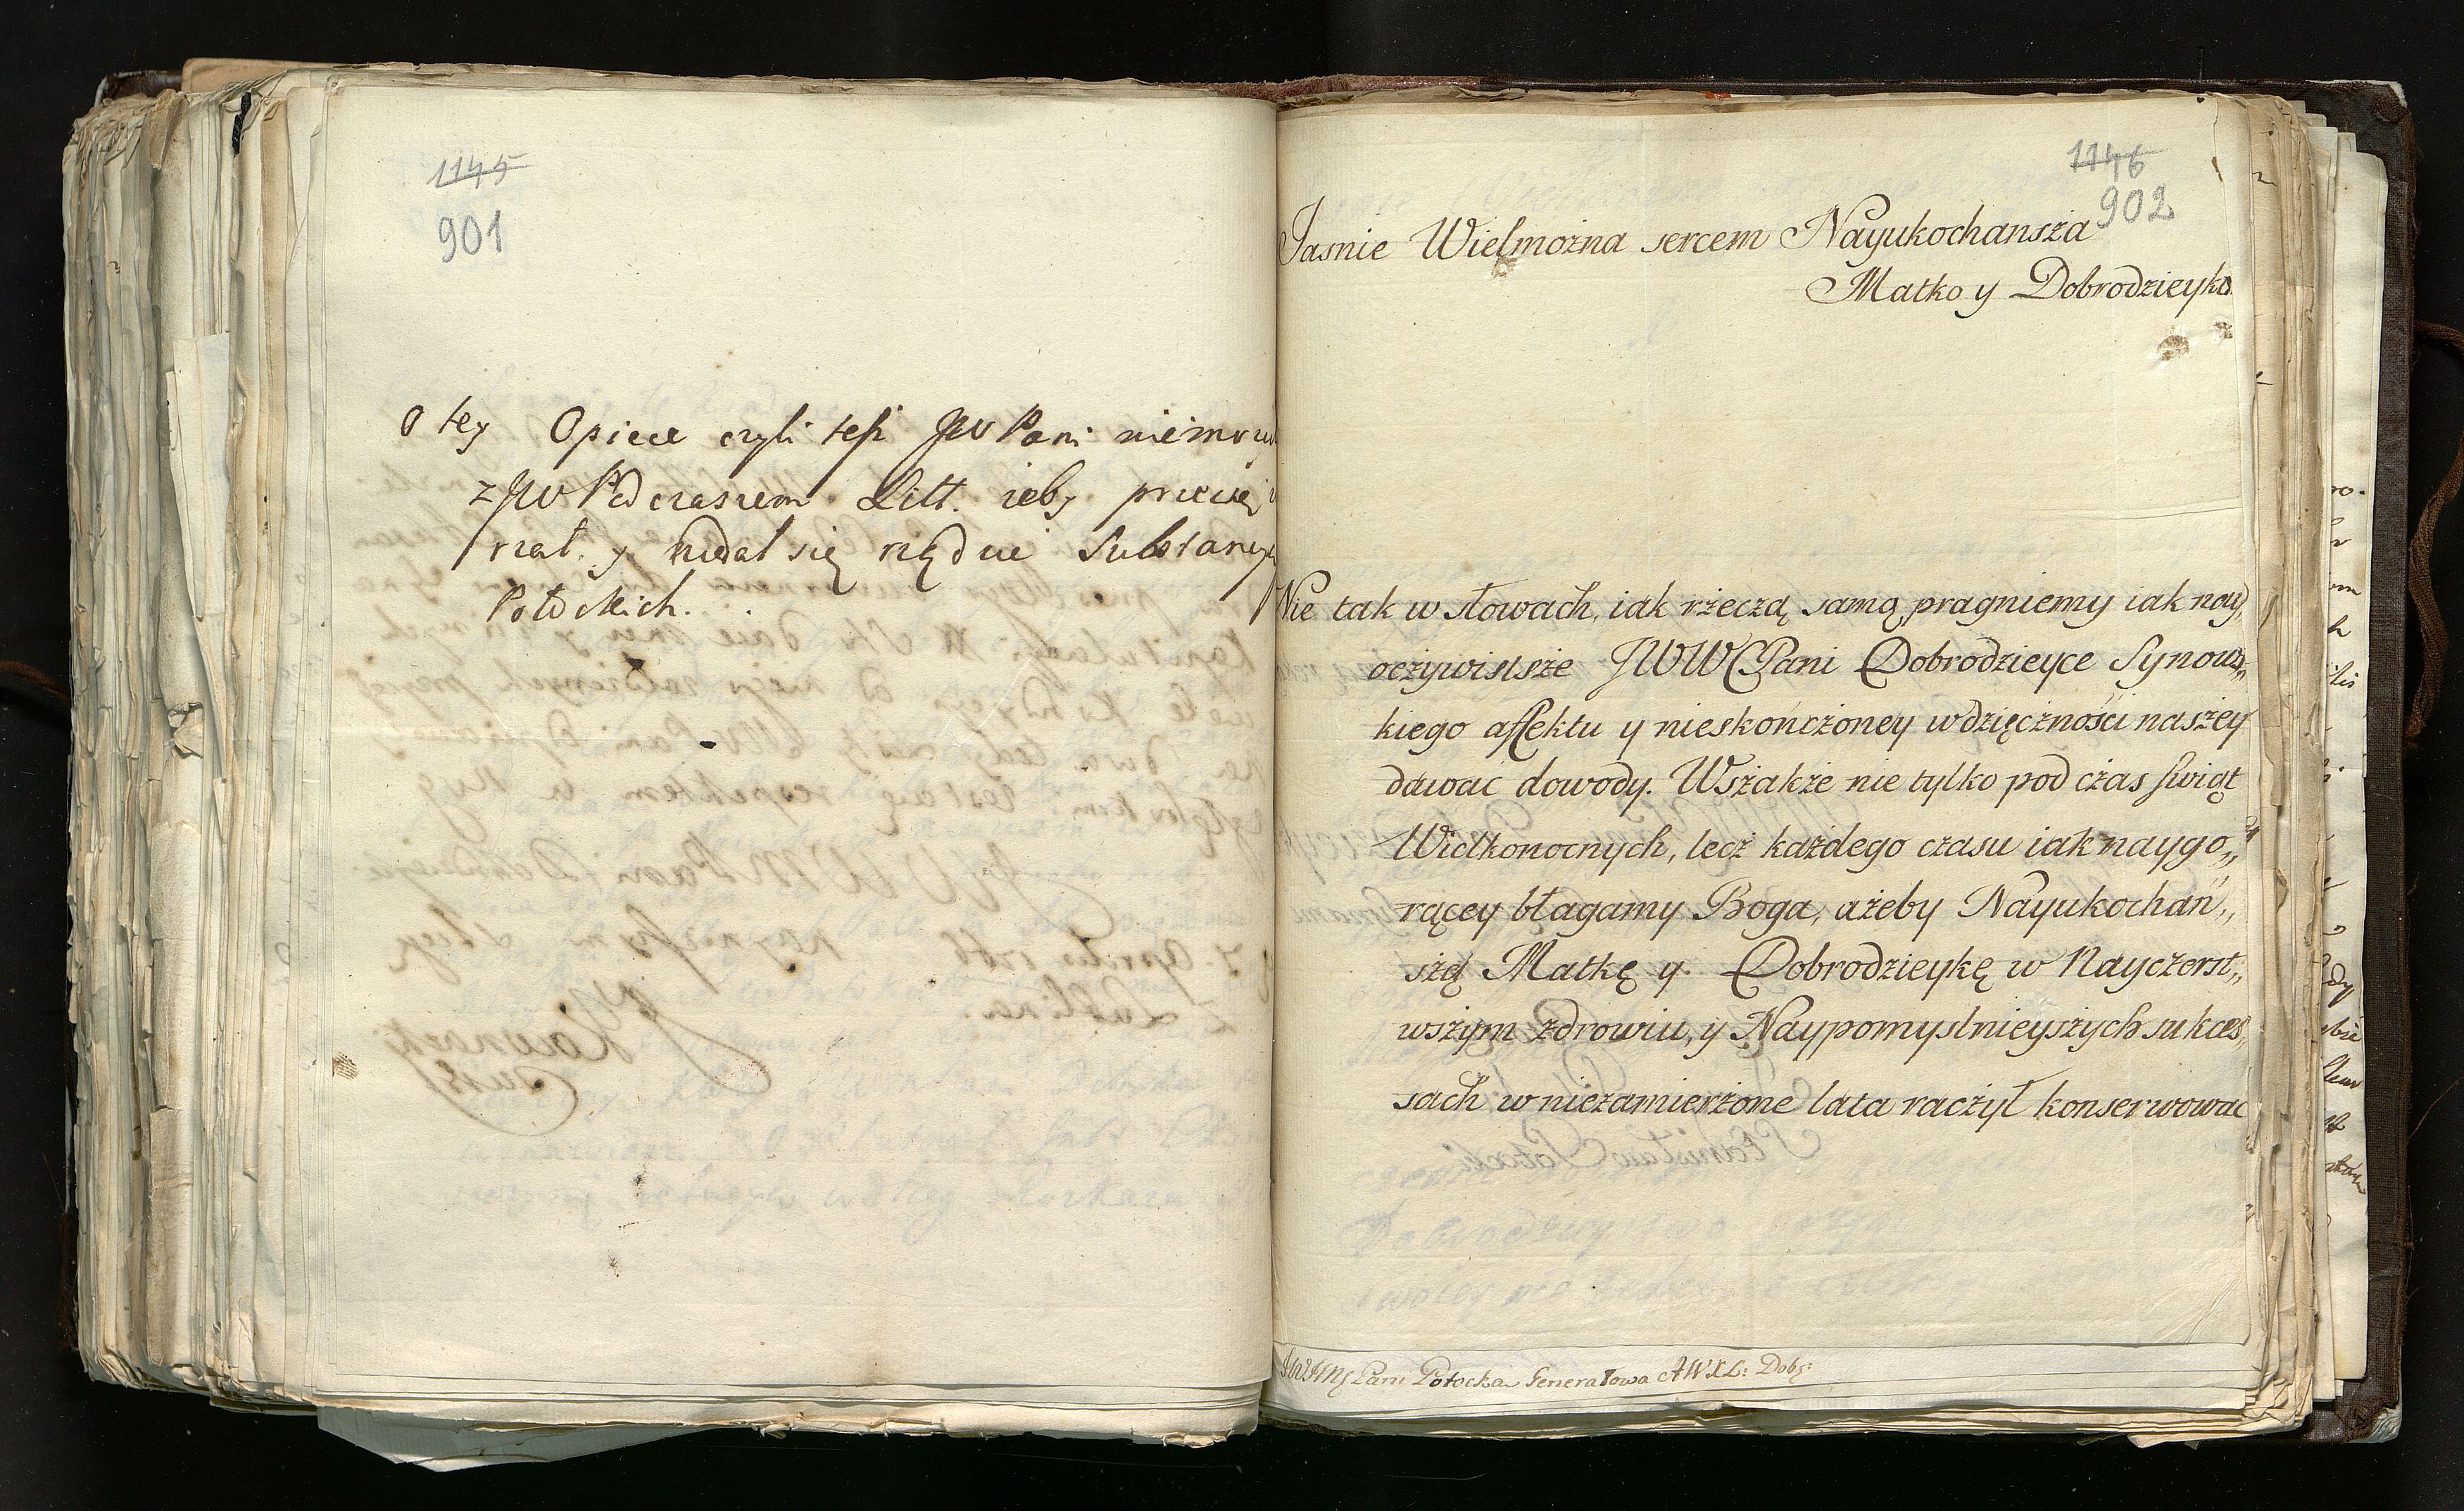 1145
901
o tey Opiece czyli tesz JW Pani
z JW Podczaszem Litt. zeby
rzał y wdał się
Potockich.
1146
902
Jasnie Wielmożna sercem Nayukochansża
Matko y Dobrodzieyko
Nie tak w słowach, iak rżeczą samą, pragniemy iak nay„
oczywistsże JWWCPani Dobrodzieyce Synows„
kiego affektu y nieskończżoney wdzięcżności naszey
dawać dowody. Wszakże nie tylko pod cżas swiąt
Wielkonocnych, lecż każdego czasu iak naygo„
rącey błagamy Boga, ażeby Nayukochań„
sżą Matkę y Dobrodzieykę w Nayczerst„
wsżym zdrowiu, y Naypomyslnieyszych sukces„
sach w niezamierżone lata racżył konserwowac
Pani Potocka Generałowa AWXL: Dobg: